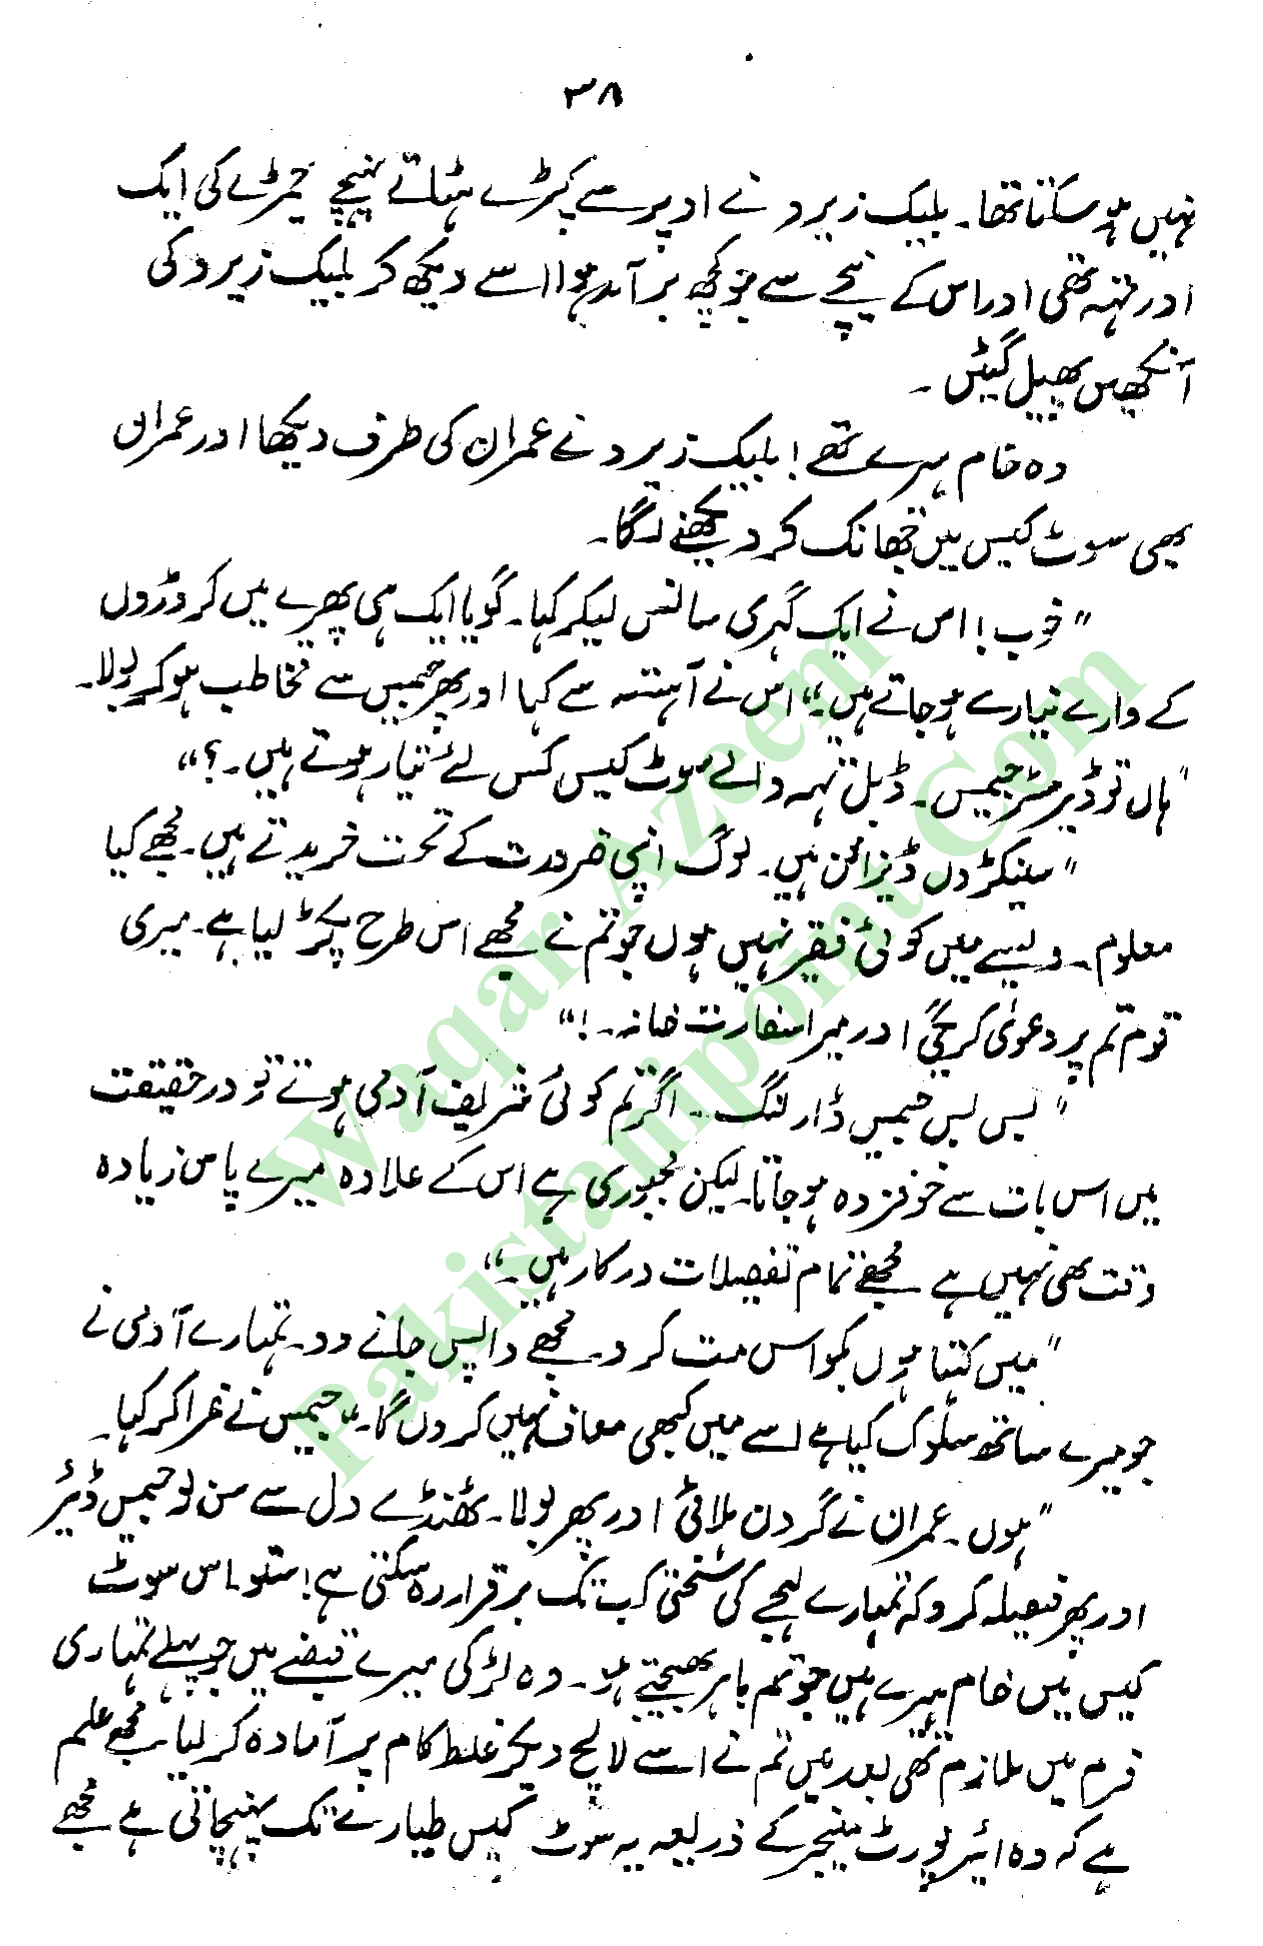 ۳۸
نہیں ہو سکتا تھا۔ بلیک زیرو نے اوپر سے کپڑے ہٹائے نیچے چمڑے کی ایک
اور تہہ تھی اور اس کے نیچے سے جو کچھ برآمد ہوا اسے دیکھ کر بلیک زیرو کی
آنکھیں پھیل گئیں ۔
وہ خام ہیرے تھے ! بلیک زیرو نے عمران کی طرف دیکھا اور عمران
بھی سوٹ کیس میں جھانک کر دیکھنے لگا۔
"خوب ! اس نے ایک گہری سانس لیکر کہا۔ گویا ایک ہی پھیرے میں کروڑوں
کے وارے نیارے ہو جاتے ہیں۔" اس نے آہستہ سے کہا اور پھر جیمس سے مخاطب ہو کر بولا۔
"ہاں تو ڈیر مسٹر جیمس ۔ ڈبل تہہ والے سوٹ کیس کس لئے تیار ہوتے ہیں ۔؟"
"سینکڑوں ڈیزائن ہیں۔ لوگ اپنی ضرورت کے تحت خریدتے ہیں۔ مجھے کیا
معلوم۔ ویسے میں کوئی فقیر نہیں ہوں جو تم نے مجھے اس طرح پکڑ لیا ہے۔ میری
قوم تم پر دعویٰ کریگی اور میرا سفارت خانہ ۔!"
"بس بس جیمس ڈارلنگ ۔ اگر تم کوئی شریف آدمی ہوتے تو درحقیقت
میں اس بات سے خوفزدہ ہو جاتا۔ لیکن مجبوری ہے اس کے علاوہ میرے پاس زیادہ
وقت بھی نہیں ہے مجھے تمام تفصیلات درکار ہیں ۔"
"میں کہتا ہوں بکواس مت کرو۔ مجھے واپس جانے دو۔ تمہارے آدمی نے
جو میرے ساتھ سلوک کیا ہے اسے میں کبھی معاف نہیں کروں گا۔" جیمس نے غرا کر کہا۔
"ہوں۔ عمران نے گردن ہلائی اور پھر بولا۔ ٹھنڈے دل سے سن لو جیمس ڈیئر
اور پھر فیصلہ کرو کہ تمہارے لہجے کی سختی کب تک برقرار رہ سکتی ہے! سنو۔ اس سوٹ
کیس میں خام ہیرے ہیں جو تم باہر بھیجتے ہو۔ وہ لڑکی میرے قبضے میں جو پہلے تمہاری
فرم میں ملازم تھی بعد میں تم نے اسے لالچ دیکر غلط کام پر آمادہ کر لیا۔ مجھے علم
ہے کہ وہ ائیر پورٹ مینجر کے ذریعہ یہ سوٹ کیس طیارے تک پہنچاتی ہے مجھے
Waqar Azeem
Pakistanipoint.Com